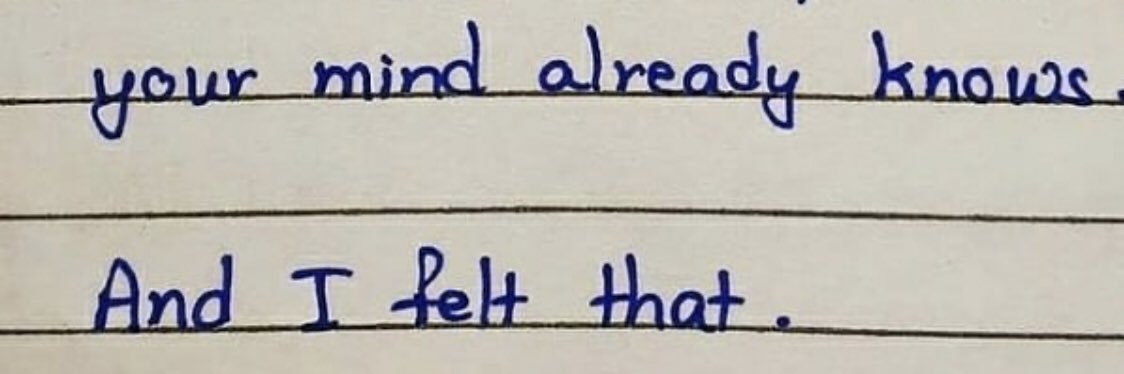 your mind already knows.
And I felt that.